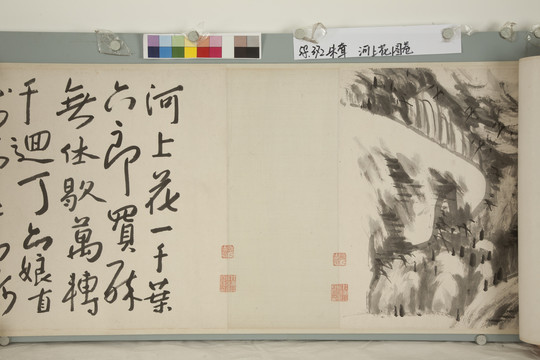 朱耷 河上花图卷
河上花一千葉
六郎買醉
無休歇萬轉
千迴丁六娘直